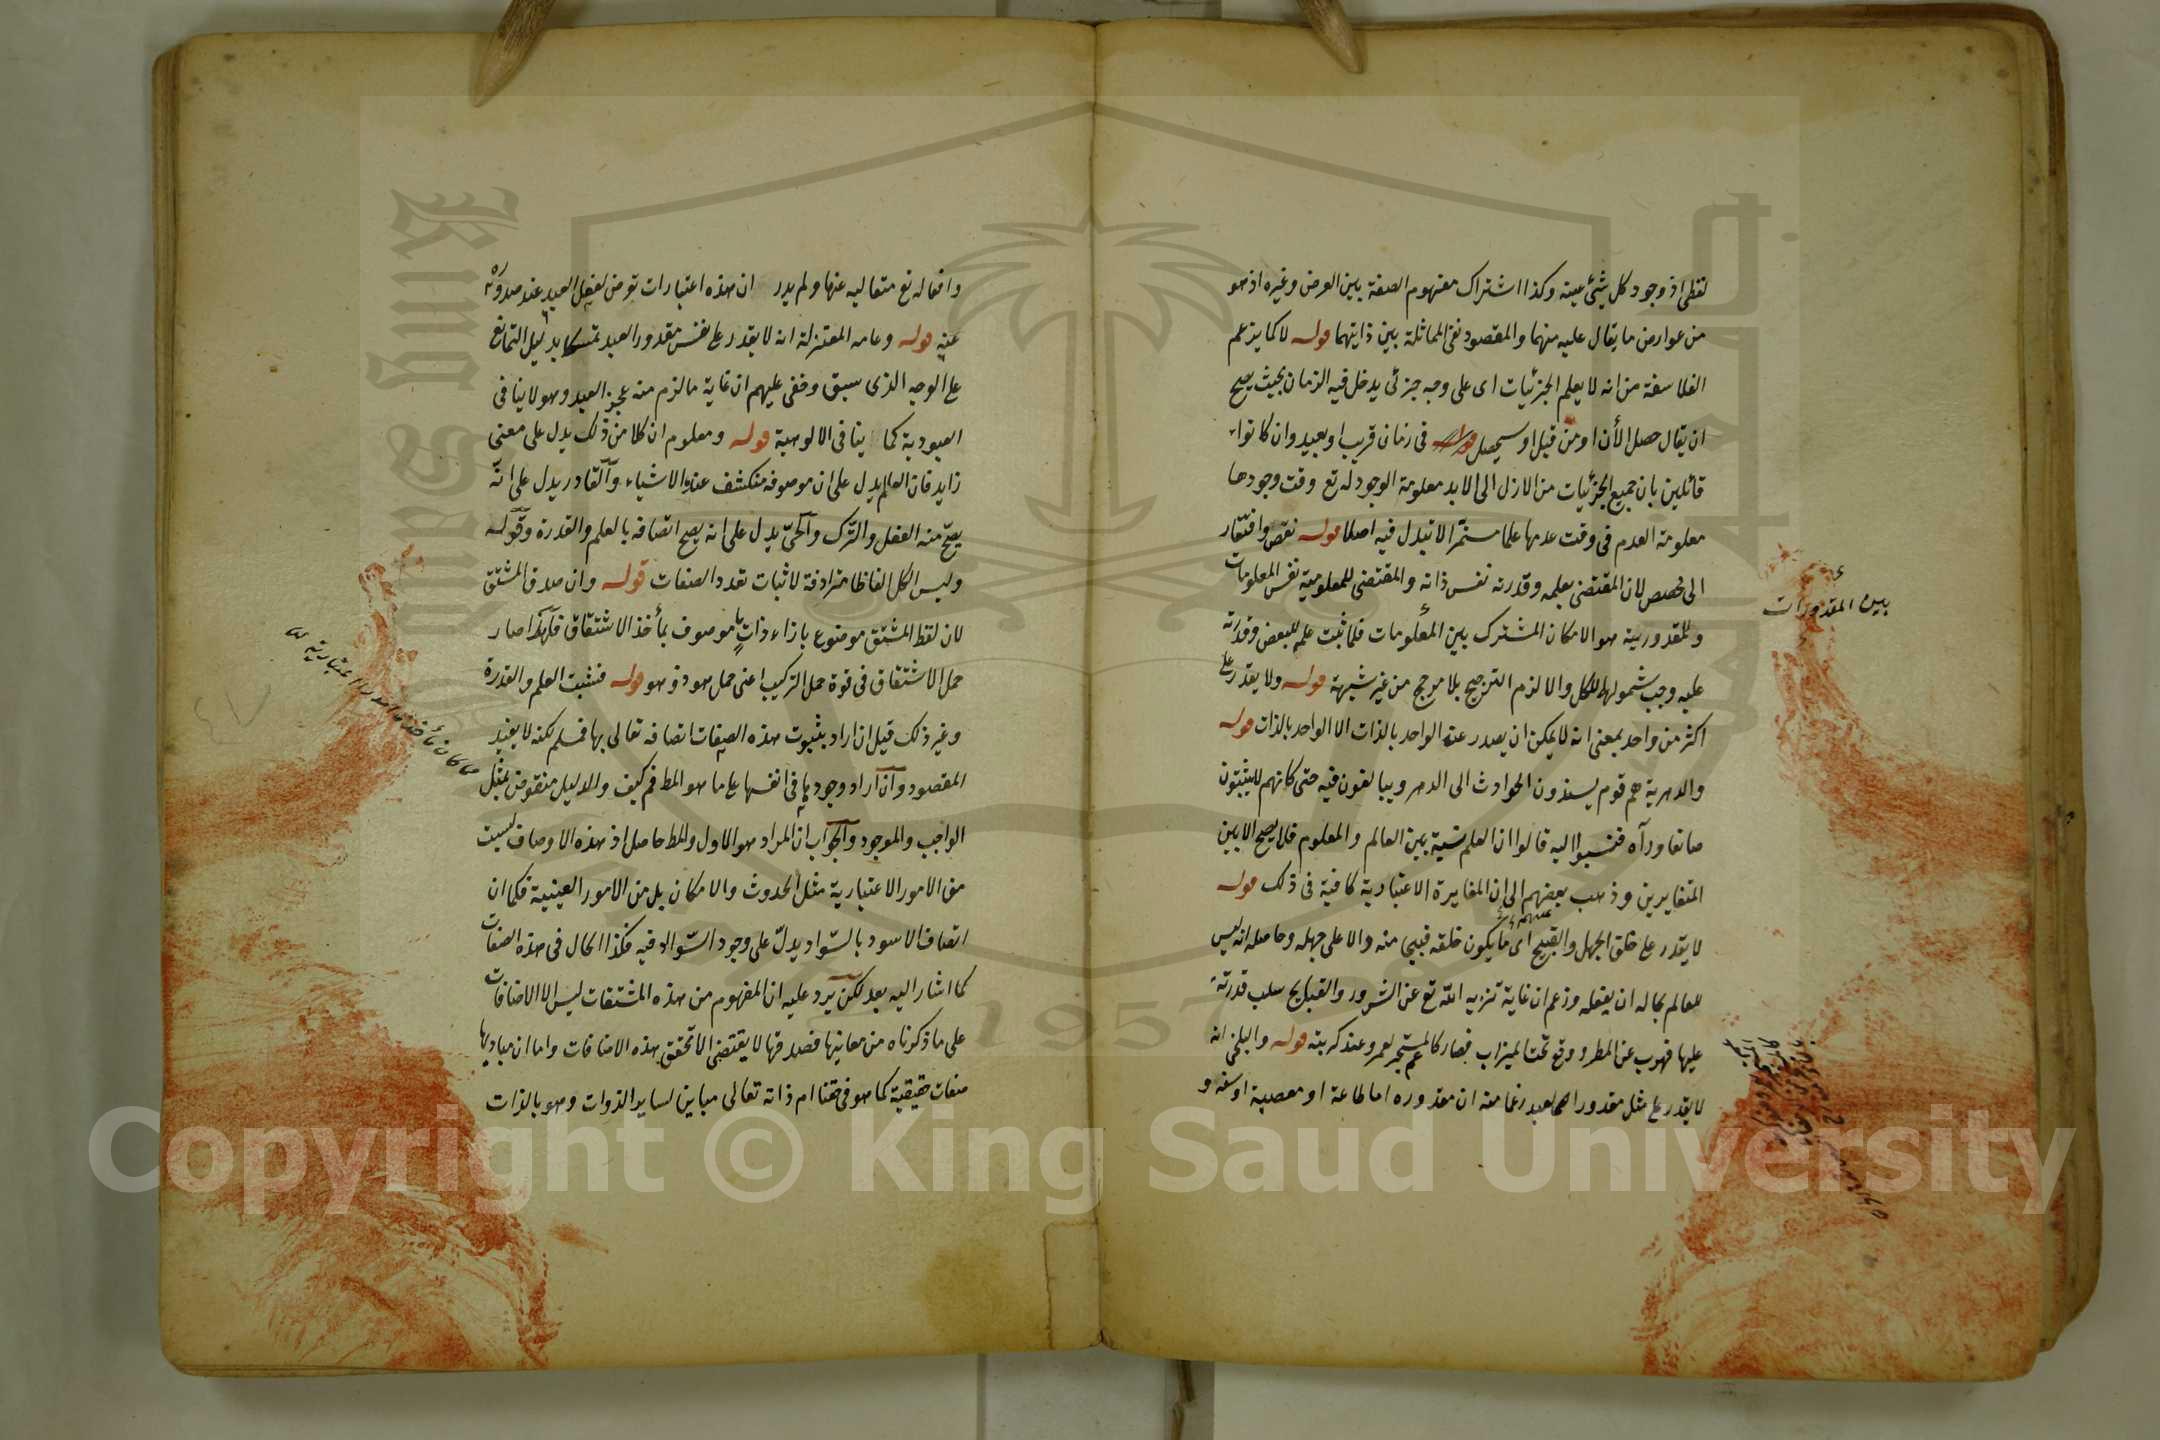 لفظى اذ وجود كل شئ عينه وكذا اشتراك مفهوم الصفة بين العرض وغيره اذ هو
من عوارض ما يقال عليه منهما والمقصود نفى المماثلة بين ذاتيهما قوله لا كما يزعم
الفلاسفة من انه لا يعلم الجزئيات اى على وجه جزئى يدخل فيه الزمان بحيث يصح
ان يقال حصل الأن او من قبل او سيحصل فى زمان قريب او بعيد وان كانوا
قائلين بان جميع الجزئيات من الازل الى الابد معلومة الوجود له تع وقت وجودها
معلومة العدم فى وقت عدمها علما مستمرا لا تبدل فيه اصلا قوله نقص وافتقار
الى مخصص لان المقتضى بعلمه وقدرته نفس ذاته والمقتضى للمعلومية نفس المعلومات
وللمقدورية هو الامكان المشترك بين المعلومات فلما ثبت علمه للبعض وقدرته
عليه وجب شمولهما للكل والا لزم الترجيح بلا مرجح من غير شبهة قوله ولا يقدر على
اكثر من واحد بمعنى انه لا يمكن ان يصدر عنه الواحد بالذات الا الواحد بالذات قوله
والدهرية هم قوم يسندون الحوادث الى الدهر ويبالغون فيه حتى كانهم لا يثبتون
صانعا وراه فنسبوا اليه قالوا ان العلم نسبة بين العالم والمعلوم فلا يصح الا بين
المتغايرين وذهب بعضهم الى ان المغايرة الاعتبارية كافية فى ذلك قوله
لا يقدر على خلق الجهل والقبيح اى ما يكون خلقه قبيحا منه والا على جهله وحاصله انه ليس
للعالم بحاله ان يفعله وزعم ان غاية تنزيه الله تع عن الشرور والقبايح سلب قدرته
عليها فهرب عن المطر ووقع تحت الميزاب فصار كالمستجير بعمرو عند كربته قوله والبلخى انه
لا يقدر على مثل مقدور العبد زعما منه ان مقدوره اما طاعة او معصية او سفه و
بين المقدورات
وافعاله تع متعالية عنها ولم يدر ان هذه اعتبارات تعرض لفعل العبد عند صدوره
عنه قوله وعامه المعتزلة انه لا يقدر على نفس مقدور العبد تمسكا بدليل التمانع
على الوجه الذى سبق وخفى عليهم ان غاية ما لزم منه عجز العبد وهو لا ينافى
العبودية كما ينافى الالوهية قوله ومعلوم ان كلا من ذلك يدل على معنى
زايد فان العلم يدل على ان موصوفه منكشف عنده الاشياء والقادر يدل على انه
يصح منه الفعل والترك والحى يدل على انه يصح اتصافه بالعلم والقدرة وقوله
وليس الكل الفاظا مترادفة لاثبات تعدد الصفات قوله وان صدق المشتق
لان لفظ المشتق موضوع بازاء ذات ما موصوف بمأخذ الاشتقاق فلهذا صار
حمل الاشتقاق فى قوة حمل التركيب اعنى حمل هو ذو هو قوله فثبت العلم والقدرة
وغير ذلك قيل ان اراد بثبوت هذه الصفات اتصافه تعالى بها فمسلم لكنه لا يفيد
المقصود وان اراد وجودها فى انفسها على ما هو المط فم كيف والدليل منقوض بمثل
الواجب والموجود والجواب ان المراد هو الاول والمط حاصل اذ هذه الاوصاف ليست
من الامور الاعتبارية مثل الحدوث والامكان بل من الامور العينية فكما ان
اتصاف الاسود بالسواد يدل على وجود السواد فيه فكذا الحال فى هذه الصفات
كما اشار اليه بعد لكن يرد عليه ان المفهوم من هذه المشتقات ليس الا الاضافات
على ما ذكرناه من معانيها فصدقها لا يقتضى الا تحقق هذه الاضافات واما ان مباديها
صفات حقيقية كما هو فى حقنا ام ذاته تعالى مباين لساير الذوات وهو بالذات
King Saud University
1957
Copyright © King Saud University